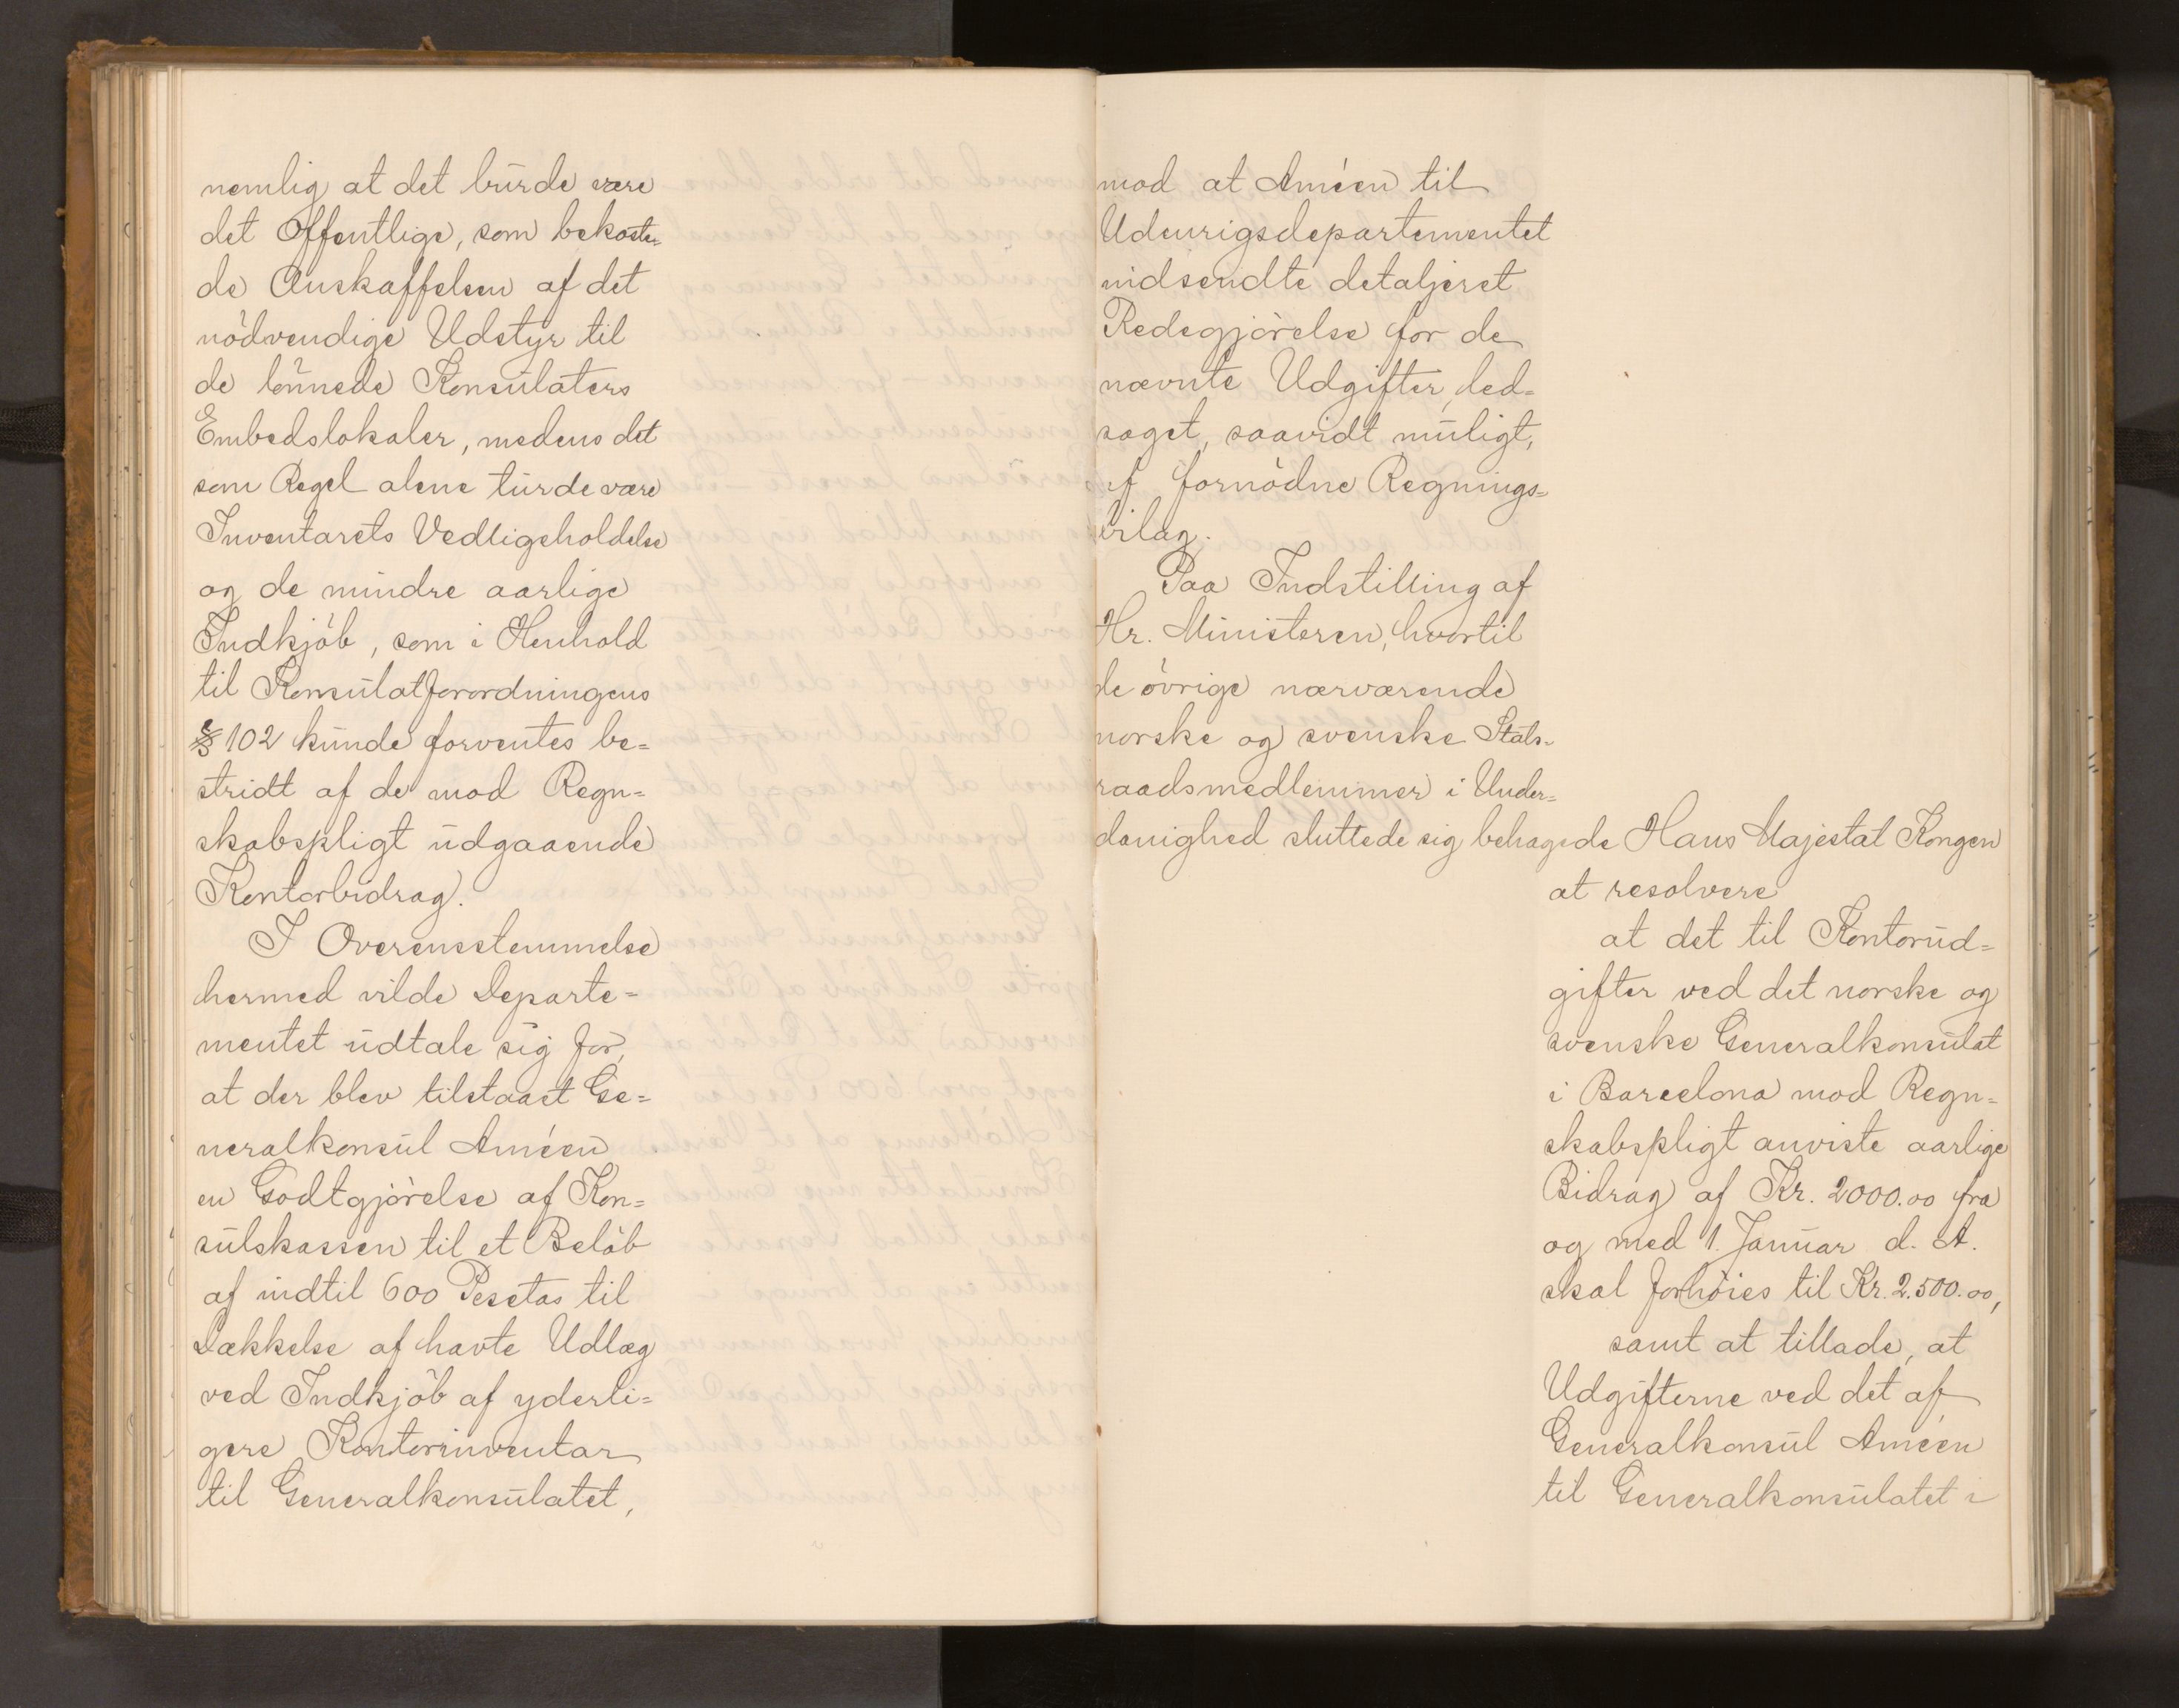 nemlig at det burde være
det Offentlige, som bekoste-
de Anskaffelsen af det
nödvendige Udstyr til
de lönnede Konsulaters
Embedslokaler, medens det
som Regel alene turde være
Inventarets Vedligeholdelse
og de mindre aarlige
Indkjöb, som i Henhold
til Konsulatforordningens
§ 102 kunde forventes be=
stridt af de mod Regn=
skabspligt udgaaende
Kontorbidrag.
I Overensstemmelse
hermed vilde Departe=
mentet udtale sig for,
at der blev tilstaaet Ge=
neralkonsul Améen
en Godtgjörelse af Kon=
sulskassen til et Belöb
af indtil 600 Pesetas til
Dækkelse af havte Udlæg
ved Indkjöb af yderli=
gere Kontorinventar
til Generalkonsulatet,
mod at Améen til
Udenrigsdepartementet
indsendte detaljeret
Redegjörelse for de
nævnte Udgifter, led=
saget, saavidt muligt,
af fornödne Regnings=
bilag.
Paa Indstilling af
Hr. Ministeren, hvortil
de övrige nærværende
norske og svenske Stats-
raadsmedlemmer i Under=
danighed sluttede sig behagede Hans Majestæt Kongen
at resolvere
at det til Kontorud=
gifter ved det norske og
svenske Generalkonsulat
i Barcelona mod Regn=
skabspligt anviste aarlige
Bidrag af Kr. 2000.00 fra
og med 1. Januar d. A.
skal forhöies til Kr. 2.500.00,
samt at tillade, at
Udgifterne ved det af
Generalkonsul Améen
til Generalkonsulatet i